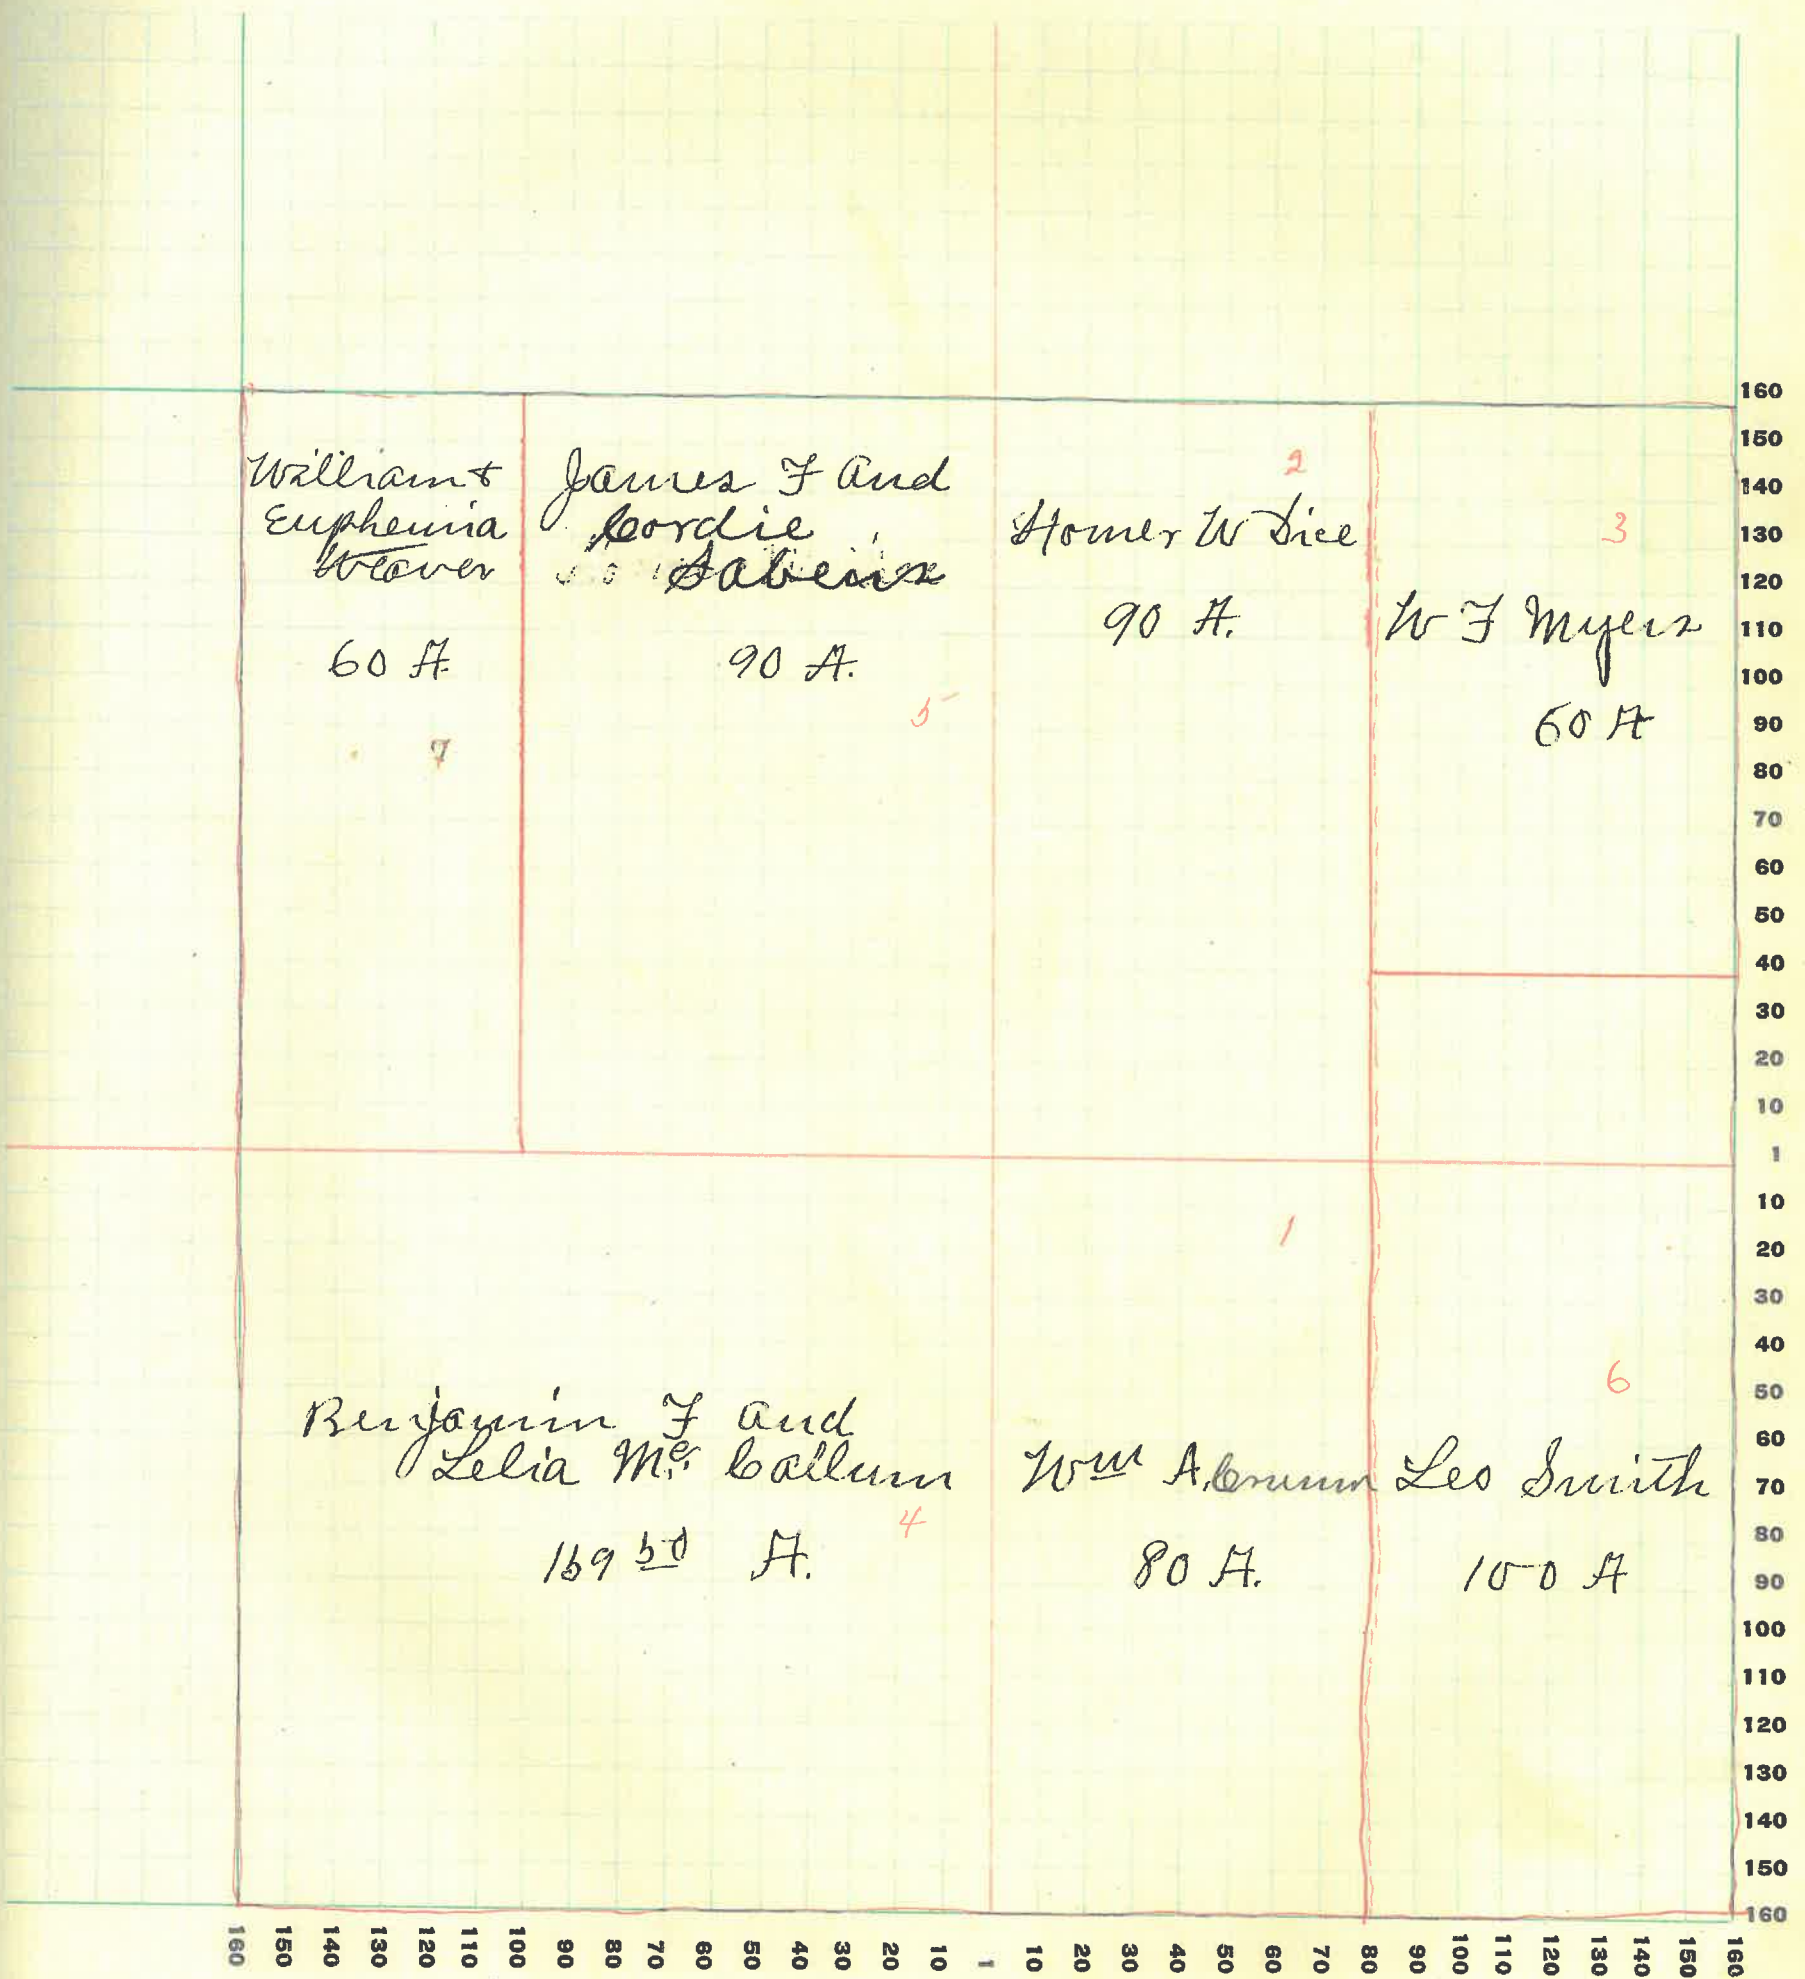 William &
Euphemia
Weaver
60 A.
7
James F and
Cordie
90 A.
5
2
Homer W Dice
90 A.
3
W F Myers
60 A
Benjamin F and
Lelia Mc Callum
4
159 50 A.
1
Wm A. Crumm
80 A.
6
Leo Smith
100 A
160
150
140
130
120
110
100
90
80
70
60
50
40
30
20
10
1
10
20
30
40
50
60
70
80
90
100
110
120
130
140
150
160
160 150 140 130 120 110 100 90 80 70 60 50 40 30 20 10 1 10 20 30 40 50 60 70 80 90 100 110 120 130 140 150 160